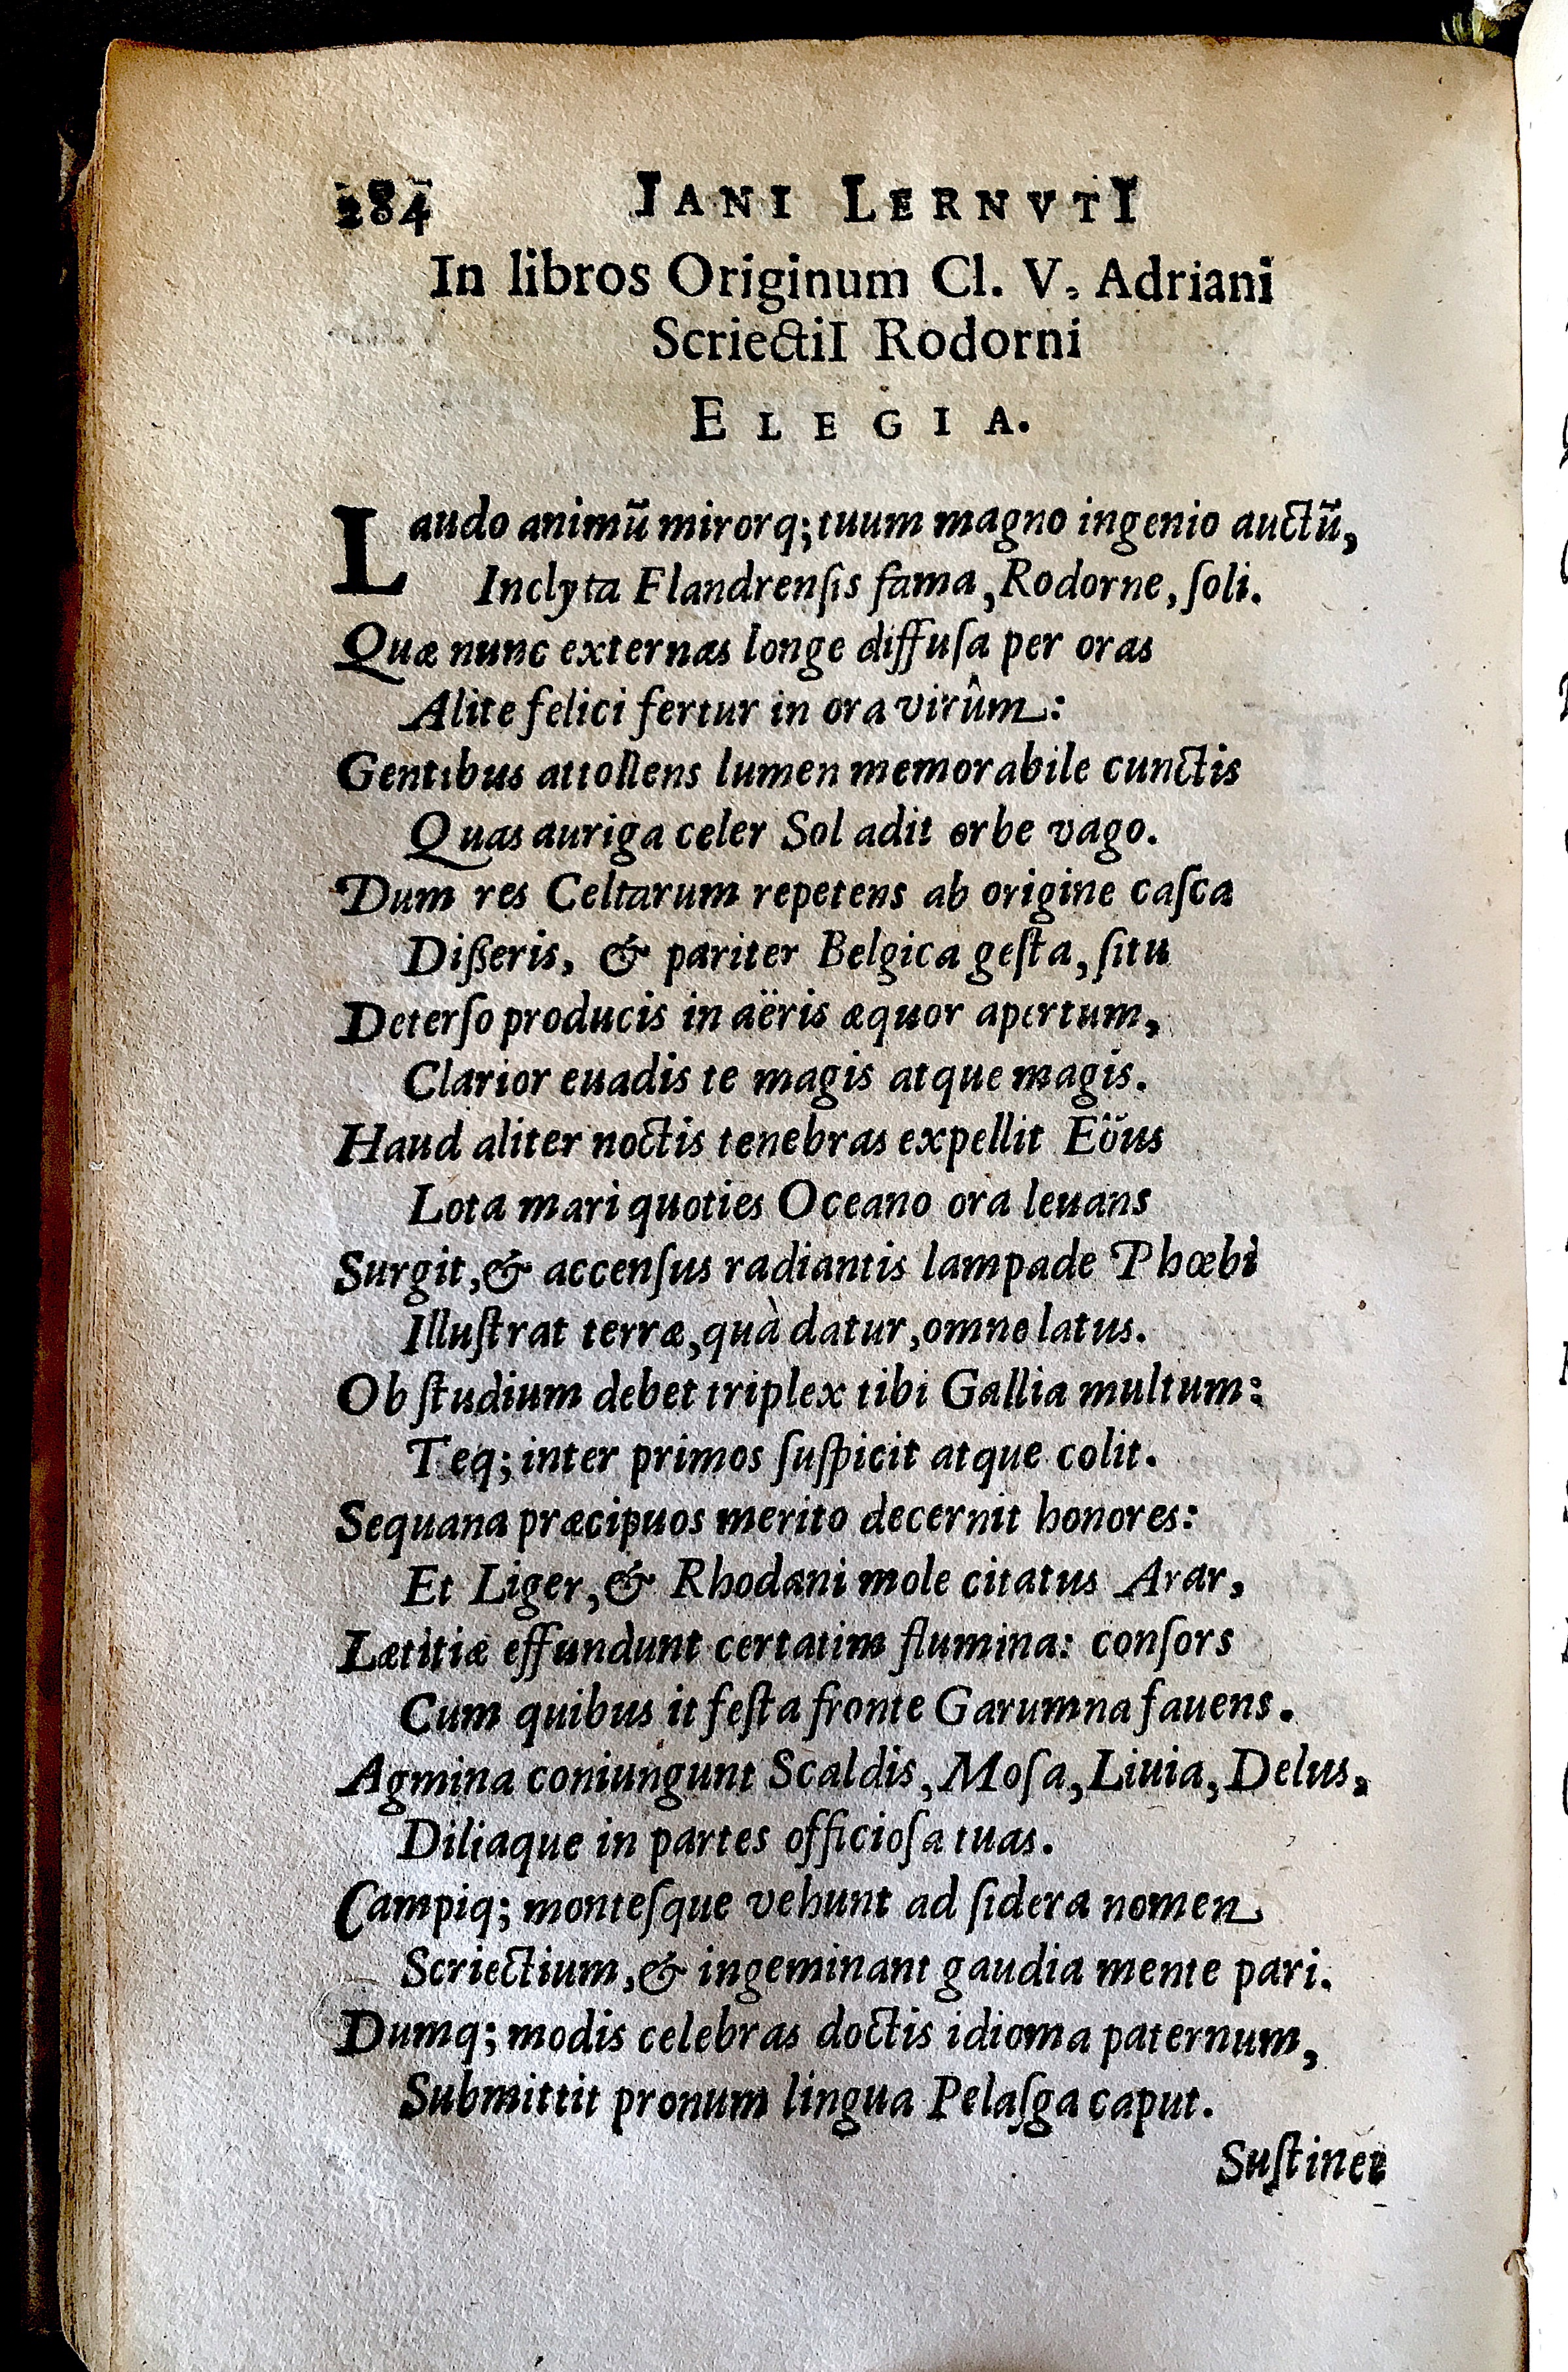 284 IANI LERNVTI
In libros Originum Cl. V. Adriani
ScriectiI Rodorni
ELEGIA.
Laudo animũ mirorq; tuum magno ingenio auctũ,
Inclyta Flandrenſis fama, Rodorne, ſoli.
Quæ nunc externas longe diffuſa per oras
Alite felici fertur in ora virûm:
Gentibus attollens lumen memorabile cunctis
Quas auriga celer Sol adit orbe vago.
Dum res Celtarum repetens ab origine caſca
Diſſeris, & pariter Belgica geſta, ſitu
Deterſo producis in aëris æquor apertum,
Clarior euadis te magis atque magis.
Haud aliter noctis tenebras expellit Eöus
Lota mari quoties Oceano ora leuans
Surgit, & accenſus radiantis lampade Phœbi
Illuſtrat terræ, quà datur, omne latus.
Ob ſtudium debet triplex tibi Gallia multum:
Teq; inter primos ſuſpicit atque colit.
Sequana præcipuos merito decernit honores:
Et Liger, & Rhodani mole citatus Arar,
Lætitiæ effundunt certatim flumina: conſors
Cum quibus it feſta fronte Garumna fauens.
Agmina coniungunt Scaldis, Moſa, Liuia, Delus,
Diliaque in partes officioſa tuas.
Campiq; monteſque vehunt ad ſidera nomen
Scriectium, & ingeminant gaudia mente pari.
Dumq; modis celebras doctis idioma paternum,
Submittit pronum lingua Pelaſga caput.
Suſtinet